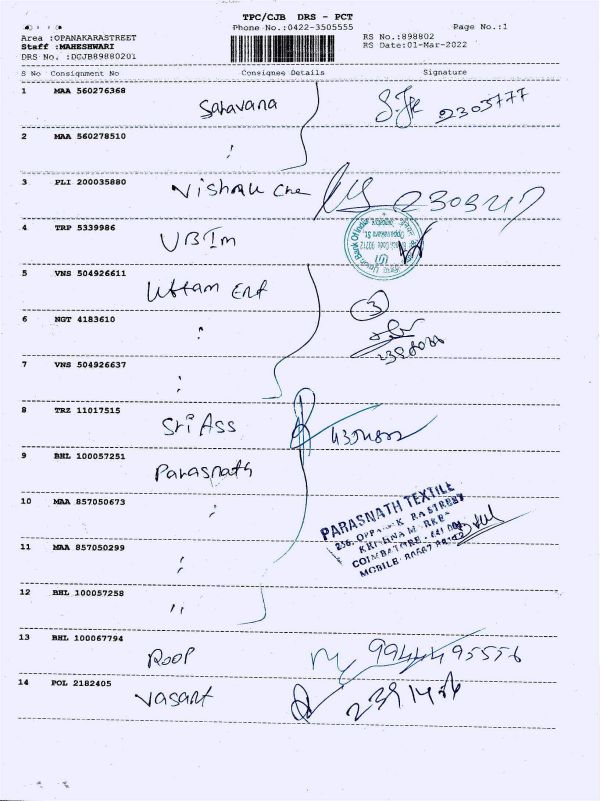 TPC/CJB DRS - PCT
Phone No.:0422-3505555
Page No.:1
Area :OPANAKARASTREET
Staff :MAHESHWARI
DRS No. :DCJB89880201
RS No.:898802
RS Date:01-Mar-2022
S No Consignment No Consignee Details Signature
1 MAA 560276368 Saravana 2305777
2 MAA 560278510
3 PLI 200035880
4 TRP 5339986 UBIm
Union Bank Of India
Oppanakara St.
5 VNS 504926611 Uttam Ent
6 NGT 4183610 3
7 VNS 504926637
8 TRZ 11017515 Sri Ass
9 BHL 100057251 Parasnath
10 MAA 857050673
PARASNATH TEXTILE
11 MAA 857050299
COIMBATORE
MOBILE
12 BHL 100057258 "
13 BHL 100067794 Roop 9944495556
14 POL 2182405 Vasant